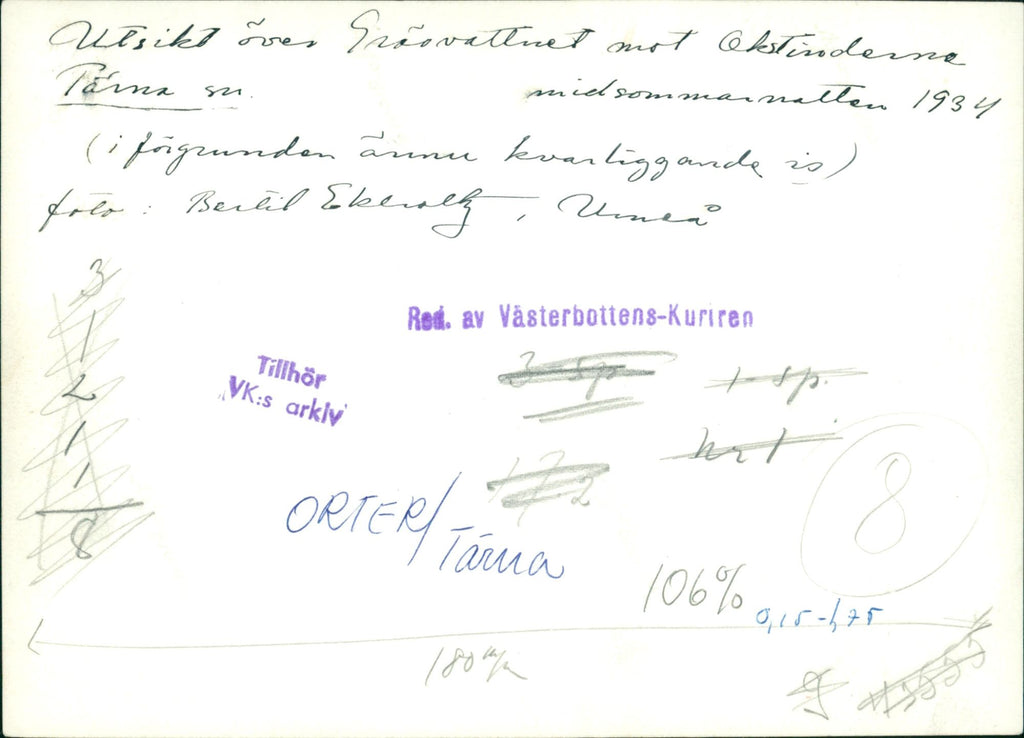 Utsikt över Gräsvattnet mot Okstinderna
Tärna sn. midsommarnatten 1934
(i förgrunden ännu kvarliggande is)
foto: Bertil Ekholtz, Umeå
3
1
2
1
1
8
Red. av Västerbottens-Kuriren
Tillhör
VK:s arkiv
3 sp
1 sp.
nr 1
ORTER/
Tärna
8
106%
0,15-1,75
180 m/m